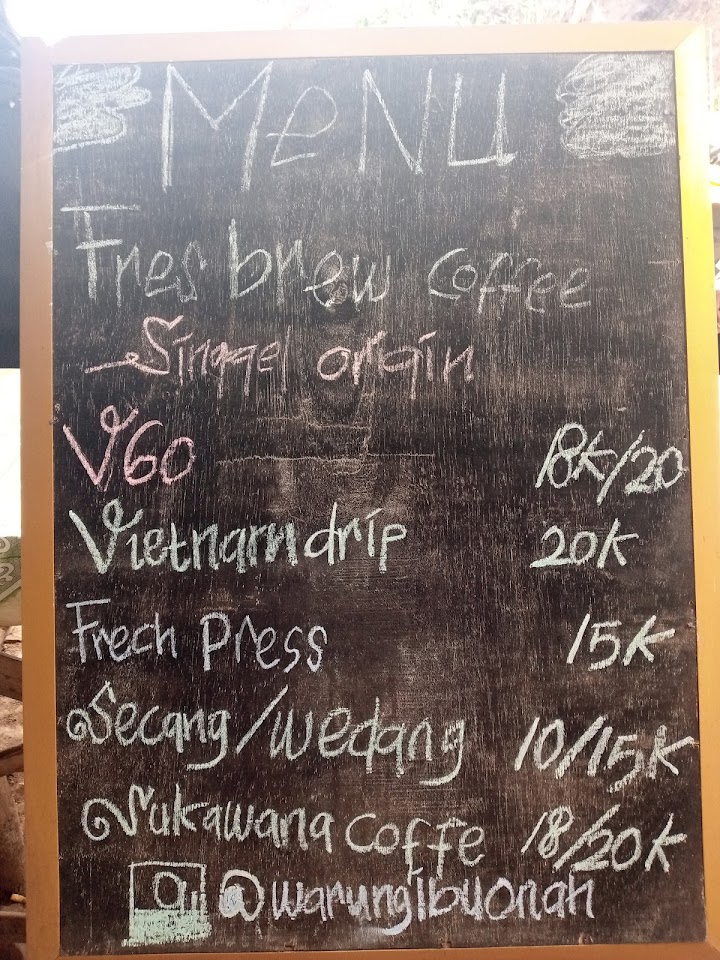 MeNU
Fres brew coffee
Singgel orgin
V60 18K/20
Vietnam drip 20K
Frech Press 15K
Secang/wedang 10/15K
Sukawana coffe 18/20K
@warungibuonah